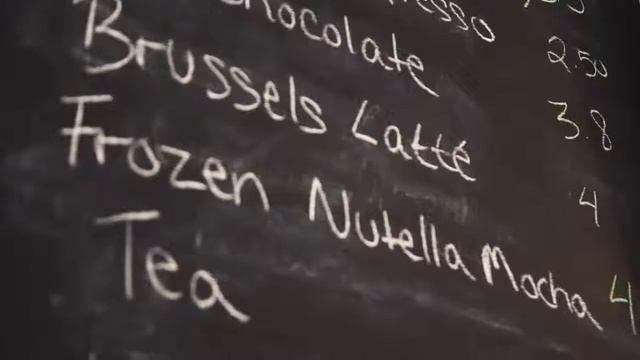 esso 2.50
hocolate 3.8
Brussels Latté 4
Frozen Nutella Mocha 4
Tea